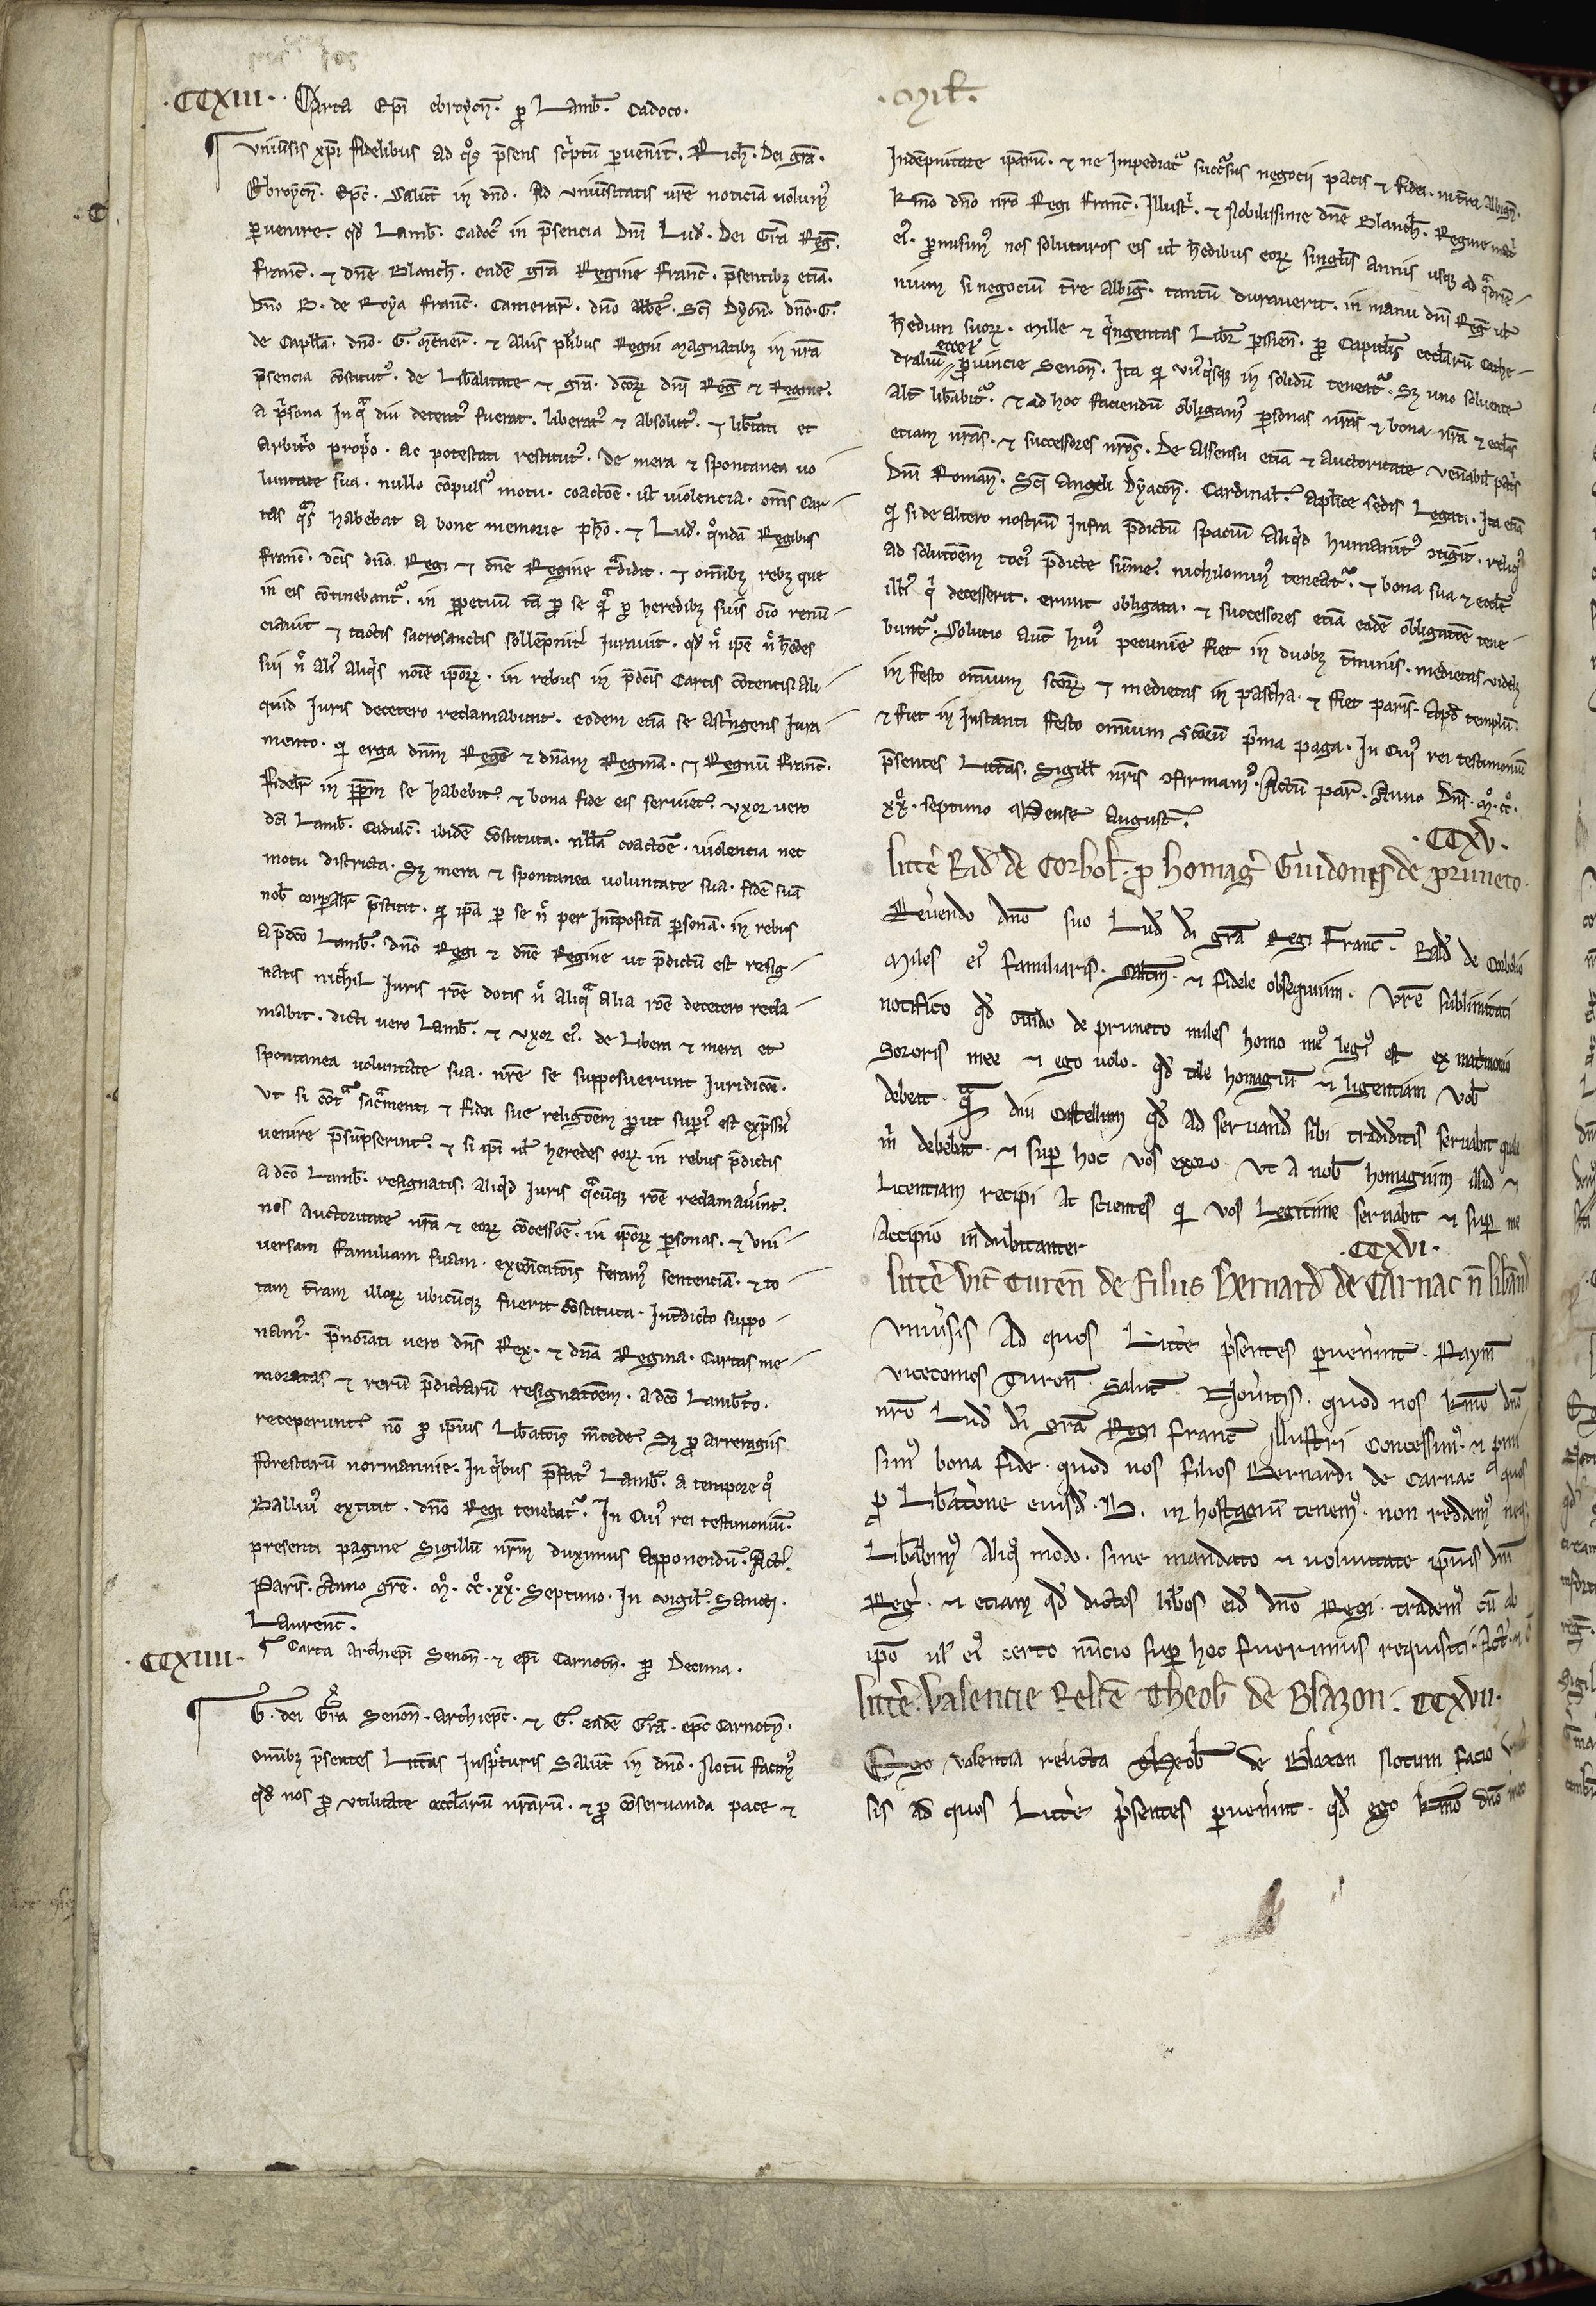 ·CCXIII· Carta Epi ebroycn. p Lamb. Cadoco.
Vniusis xpi fidelibus ad qos psens scptu puenit. Rich. Dei gra.
Ebroycn. Epc. Salut in dno. Ad vniusitatis ure noticia uolum
peruenire. qd Lamb. Cadoc in psencia Dni Lud. Dei Gra Reg.
franc. et dne Blanch. eade gra Regine franc. psentibz etia.
Dno B. de Roya franc. Camerar. dno Abbe. Sci Dyon. dno. G.
de Capll'a. dno. G. et aliis plibus Regni Magnatibz in nra
psencia constitut. de Libalitate et gra. dcorz dni Reg et Regine.
A psona In qa diu detent fuerat. liberat et absolut. et libtati et
arbitrio proprio. ac potestati restitut. de mera et spontanea uo
luntate sua. nullo compuls motu. coactoe. ul violencia. oms Car
tas qas habebat a bone memorie pho. et Lud. qonda Regibus
franc. dcis dno Regi et dne Regine tradidit. et omibz rebz que
in eis continebant. in ppetuu ta p se qa p heredibz suis oio renu
ciauit et tactis sacrosanctis sollepnit Iurauit. qd n ipe n hedes
sui n ali aliqis noie ipoz. in rebus in pdcis Cartis contentis ali
quid Iuris decetero reclamabunt. eodem etia se astingens Iura
mento. q erga dnm Rege et dnam Regina. et Regnu franc.
fidelr in ppm se habebit. et bona fide eis seruiet. vxor uero
dci Lamb. Caduc. ibide constituta. nlla coactoe. uiolencia nec
motu districta. Sz mera et spontanea voluntate sua. fide sua
nob corpalr pstitit. q ipa p se n per Intposita persona. in rebus
a pdco Lamb. dno Regi et dne Regine ut pdictu est resig
natis nichil Iuris roe dotis n aliqa alia roe decetero recla
mabit. dicti uero Lamb. et vxor ei. de Libera et mera et
spontanea voluntate sua. nre se supposuerunt Iuridicoi.
Vt si conta sacamenti et fidei sue religoem put supi est expssu
venire psupserint. et si ipi ul heredes eorz in rebus pdictis
a dco Lamb. resignatis. aliqd Iuris qacuqz roe reclamauint.
nos auctoritate nra et eorz concessoe. in ipoz psonas. et vni
versam familiam suam. excoicatois feram sentencia. et to
tam tram illorz ubicuqz fuerit constituta. Intdicto suppo
nam. pnoiati uero dns Rex. et dna Regina. Cartas me
moratas et reru pdictaru resignatoem. a dco Lambto.
receperunt no p ipius Libatois mcede. Sz p arreragiis
forestaru normannie. In qibus pfat Lamb. a tempore qo
Balliu extitit. dno Regi tenebat. In Cui rei testimoniu.
presenti pagine Sigillu nrm duximus apponendu. Act.
Paris. Anno gre. M. CC. XX. Septimo. In vigil. Sancti.
Laurenc.
·CCXIIII· Carta Archiepi Senon. et epi Carnoten. p Decima.
G. dei Gra Senon. Archiepc. et G. eade Gra. epc Carnotn.
omibz psentes Litas Inspcturis Salute in dno. Notu facim
qd nos p vtilitate ecclaru nraru. et p conseruanda pace et
·Mil·
Indepnitate ipsaru. et ne Impediat succsus negocii pacis et fidei. in tra Albign.
kmo dno nro Regi Franc. Illustr. et Nobilissime dne Blanch. Regine mat
ei. pmisim nos soluturos eis ul hedibus eorz singlis annis usqz ad qadrie
nium si negociu tre albig. tantu durauerit. in manu dni Reg ul
hedum suorz. Mille et qingentas Libr parisien. p Capitlis ecclaru Cathe
draliu puincie Senon. Ita q vnqisqz in solidu teneat. Sz uno soluente
alt libabit. et ad hoc faciendu obligam psonas nras et bona nra et ecclas
etiam nras. et successores nros. De Assensu etia et auctoritate venabil patis
Dni Roman. Sci Angeli Dyacon. Cardinal. Aplice sedis Legati. Ita etia
q si de altero nostru Infra pdictu spaciu aliqid humanit otigit. reliq
ad solutoem toci pdicte sume. nichilomin teneat. et bona sua et eccle
illi qi decesserit. erunt obligata. et successores etia eade obligatoe tene
bunt. Solutio aut hui pecunie fiet in duobz tminis. medietas videlz
in festo omium scorz et medietas in pascha. et fiet paris. Apd templu.
et fiet in Instanti festo omnium Scoru pima paga. In Cui rei testimoniu
psentes Littas. Sigill nris ofirmam. Actu par. Anno Dni. M. CC.
XX. septimo Mense August.
·CCXV·
litte Bad de Corbol. p homag Guidonis de pruneto.
Reuendo dno suo Lud di gra Regi Franc. Bald de Corbolio
Miles ei familiaris. Saltm. et fidele obsequium. Vre sublimitati
notifico qd Guido de pruneto miles homo me legi est ex matimonio
Sororis mee et ego uolo. qd tale homagiu et ligentiam vob
debeat. qam diu Castellum qd ad seruand sibi tradiditis seruabit quale
m debebat. et sup hoc vos exoro. Vt a nob homagium illud et
Licentiam recipi at scientes q vos Legitime seruabit et sup me
Accipio indubitanter
·CCXVI·
litte vic Turen de filiis Bernard de Carnac n liband
Vniusis Ad quos Litte psentes peruenint. Raym
vicecomes Turon. Salut. Nouitis. quod nos kmo dno
nro Lud di gra Regi franc Illustri Concessim. et pmi
sim bona fide. quod nos filios Bernardi de Carnac quos
p Libatione eiusd. B. in hostagiu tenem. non reddem nec
Libabim aliq modo. sine mandato et uoluntate ipius dni
Reg. et etiam qd dictos libos eid dno Regi. tradem cu ab
ipo ul ei certo nucio sup hoc fuerimus requisiti. Act.
litte. Valencie Relce Theob de Blazon. CCXVII·
Ego valentia relicta Theob de Blazon Notum facio
sis ad quos Litte psentes puenint. qd ego kmo dno meo